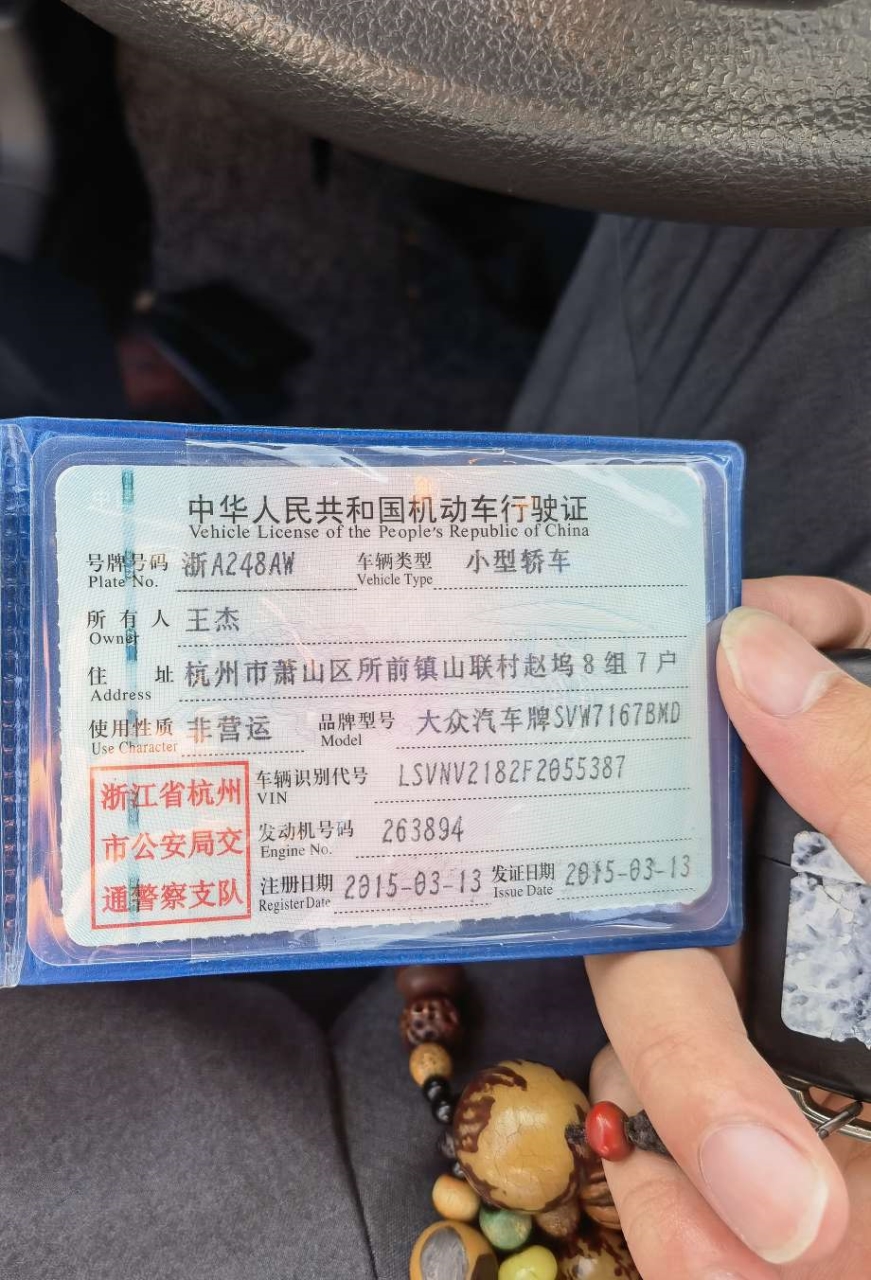 中华人民共和国机动车行驶证
Vehicle License of the People's Republic of China
号牌号码 浙A248AW 车辆类型 小型轿车
Plate No. Vehicle Type
所有人 王杰
Owner
住址 杭州市萧山区所前镇山联村赵坞8组7户
Address
使用性质 非营运 品牌型号 大众汽车牌SVW7167BMD
Use Character Model
浙江省杭州
市公安局交
通警察支队
车辆识别代号 LSVNV2182F2055387
VIN
发动机号码 263894
Engine No.
注册日期 2015-03-13 发证日期 2015-03-13
Register Date Issue Date